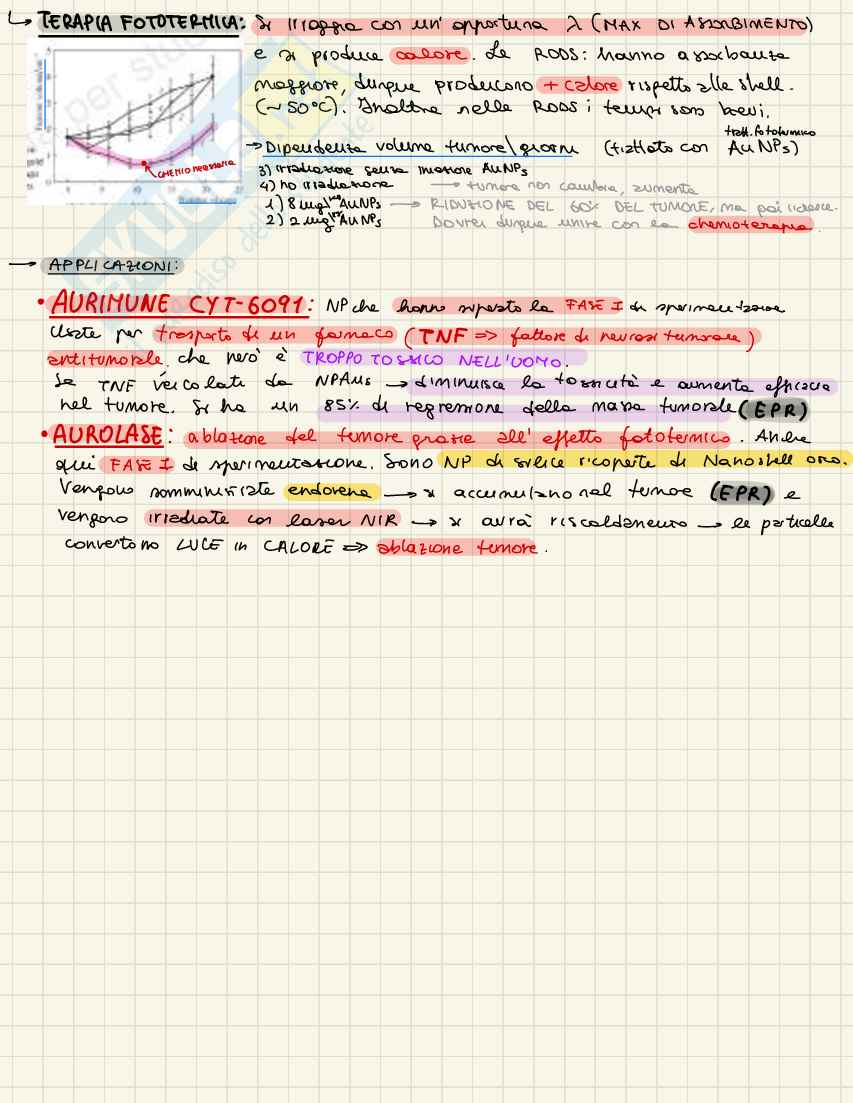 TERAPIA FOTOTERMICA: Si irraggia con un' opportuna λ (MAX DI ASSORBIMENTO)
e si produce calore. Le RODS: hanno assorbanza
maggiore, dunque producono + calore rispetto alle shell.
(~50°C). Inoltre nelle RODS i tempi sono brevi.
→ Dipendenza volume tumore\giorni (trattato con AuNPs)
tratt. fototermico
CHEMIO necessaria
3) irradiazione senza iniezione AuNPs
4) no irradiazione → tumore non cambia, aumenta
1) 8 mg/kg AuNPs → RIDUZIONE DEL 60% DEL TUMORE, ma poi ricresce.
2) 2 mg/kg AuNPs Dovrei dunque unire con la chemioterapia.
→ APPLICAZIONI:
• AURIMUNE CYT-6091: NP che hanno superato la FASE I di sperimentazione
Usate per trasporto di un farmaco (TNF => fattore di necrosi tumorale)
antitumorale che però è TROPPO TOSSICO NELL'UOMO.
Se TNF veicolate da NPAus → diminuisce la tossicità e aumenta efficacia
nel tumore. Si ha un 85% di regressione della massa tumorale (EPR)
• AUROLASE: ablazione del tumore grazie all' effetto fototermico. Anche
qui FASE I di sperimentazione. Sono NP di silice ricoperte di Nanoshell oro.
Vengono somministrate endovena → si accumulano nel tumore (EPR) e
vengono irradiate con laser NIR → si avrà riscaldamento → le particelle
convertono LUCE in CALORE => ablazione tumore.